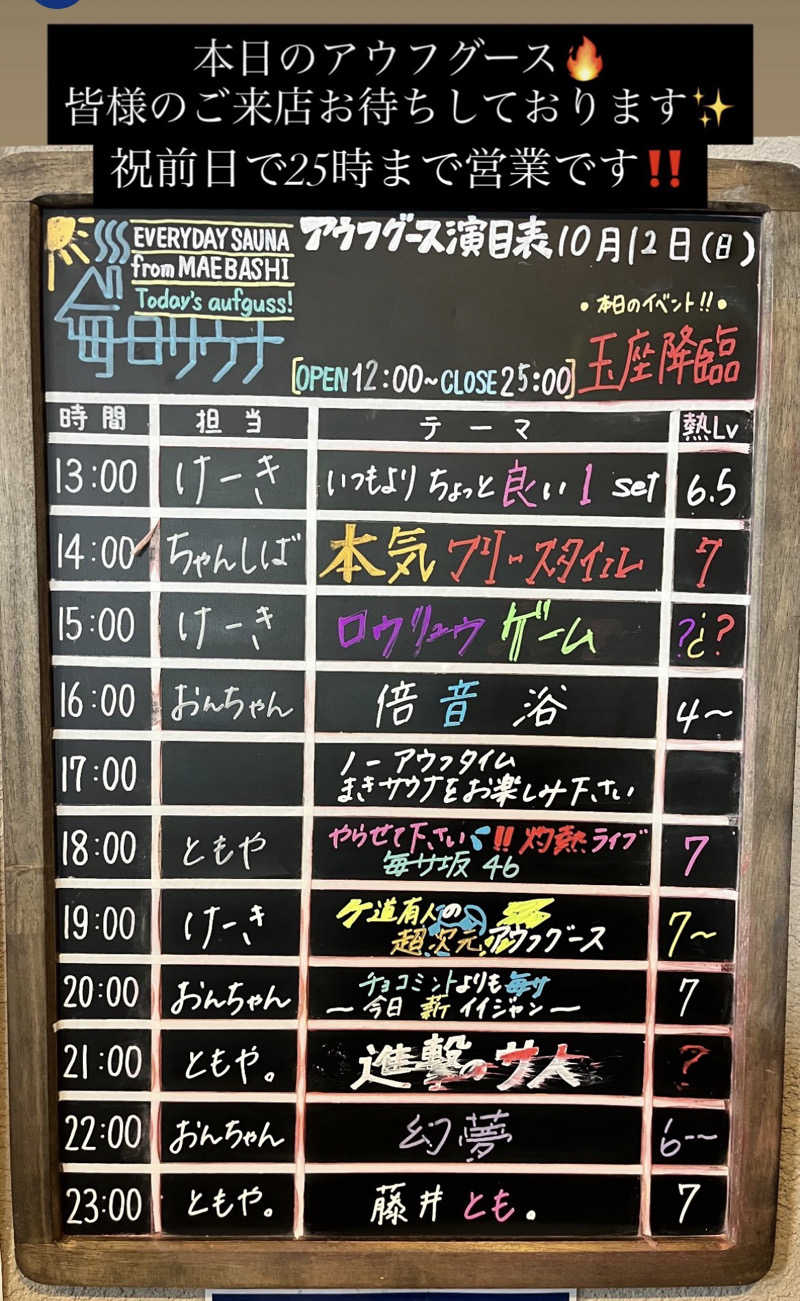 本日のアウフグース🔥
皆様のご来店お待ちしております✨
祝前日で25時まで営業です‼️
EVERYDAY SAUNA
from MAEBASHI
Today's aufguss!
毎日サウナ
アウフグース演目表 10月12日(日)
• 本日のイベント!! •
玉座降臨
[OPEN 12:00~CLOSE 25:00]
時間 担当 テーマ 熱Lv
13:00 けーき いつもより ちょっと 良い 1 set 6.5
14:00 ちゃんしば 本気 フリースタイル 7
15:00 けーき ロウリュウ ゲーム ?¿?
16:00 おんちゃん 倍音浴 4~
17:00 ノーアウフタイム
まきサウナをお楽しみ下さい
18:00 ともや やらせて下さい💦!! 灼熱ライブ 7
毎サ坂 46
19:00 けーき ケ道有人の 7~
超次元アウフグース
20:00 おんちゃん チョコミントよりも毎サ 7
~今日 薪 イイジャン~
21:00 ともや。 進撃のサ人 ?
22:00 おんちゃん 幻夢 6~
23:00 ともや。 藤井 とも。 7